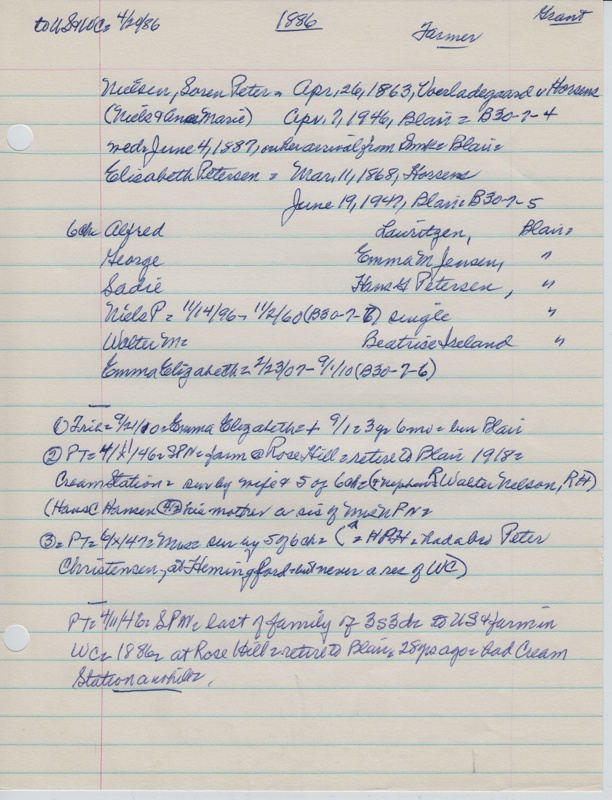 to US & WC = 4/29/86 1886 Farmer Grant
Nielsen, Soren Peter = Apr. 26, 1863, Overladegaard v Horsens
(Niels & Ane Marie) Apr. 7, 1946, Blair = B30-7-4
wed = June 4, 1887, on her arrival from Dmk = Blair =
Elisabeth Petersen = Mar. 11, 1868, Horsens
June 19, 1947, Blair = B30-7-5
6 ch = Alfred Lauritzen, Blair =
George Emma M Jensen, "
Sadie Hans G Petersen, "
Niels P = 11/14/96 - 11/2/60 (B30-7-7) single "
Walter M = Beatrise Iseland "
Emma Elizabeth = 2/23/07 - 9/1/10 (B30-7-6)
① Trib = 9/21/10 = Emma Elizabeth = + 9/1 = 3 yr 6 mo = bur Blair
② PT = 4/11/46 = SPN = farm @ Rose Hill = retire to Blair 1918 =
Cream Station = sur by wife & 5 of 6 ch = (& nephew R Walter Nelson, RH)
(Hans C Hansen his mother a sis of Mrs N PN =
③ = PT = 6/ /47 = Mrs = sur by 5 of 6 ch = ( = HPH = had a bro Peter
Christensen, at Hemingford = but never a res of WC)
PT = 4/11/46 = SPN = last of family of 3 s 3 d = to US & farm in
WC = 1886 = at Rose Hill = retire to Blair = 28 yrs ago = had Cream
Station awhile = .